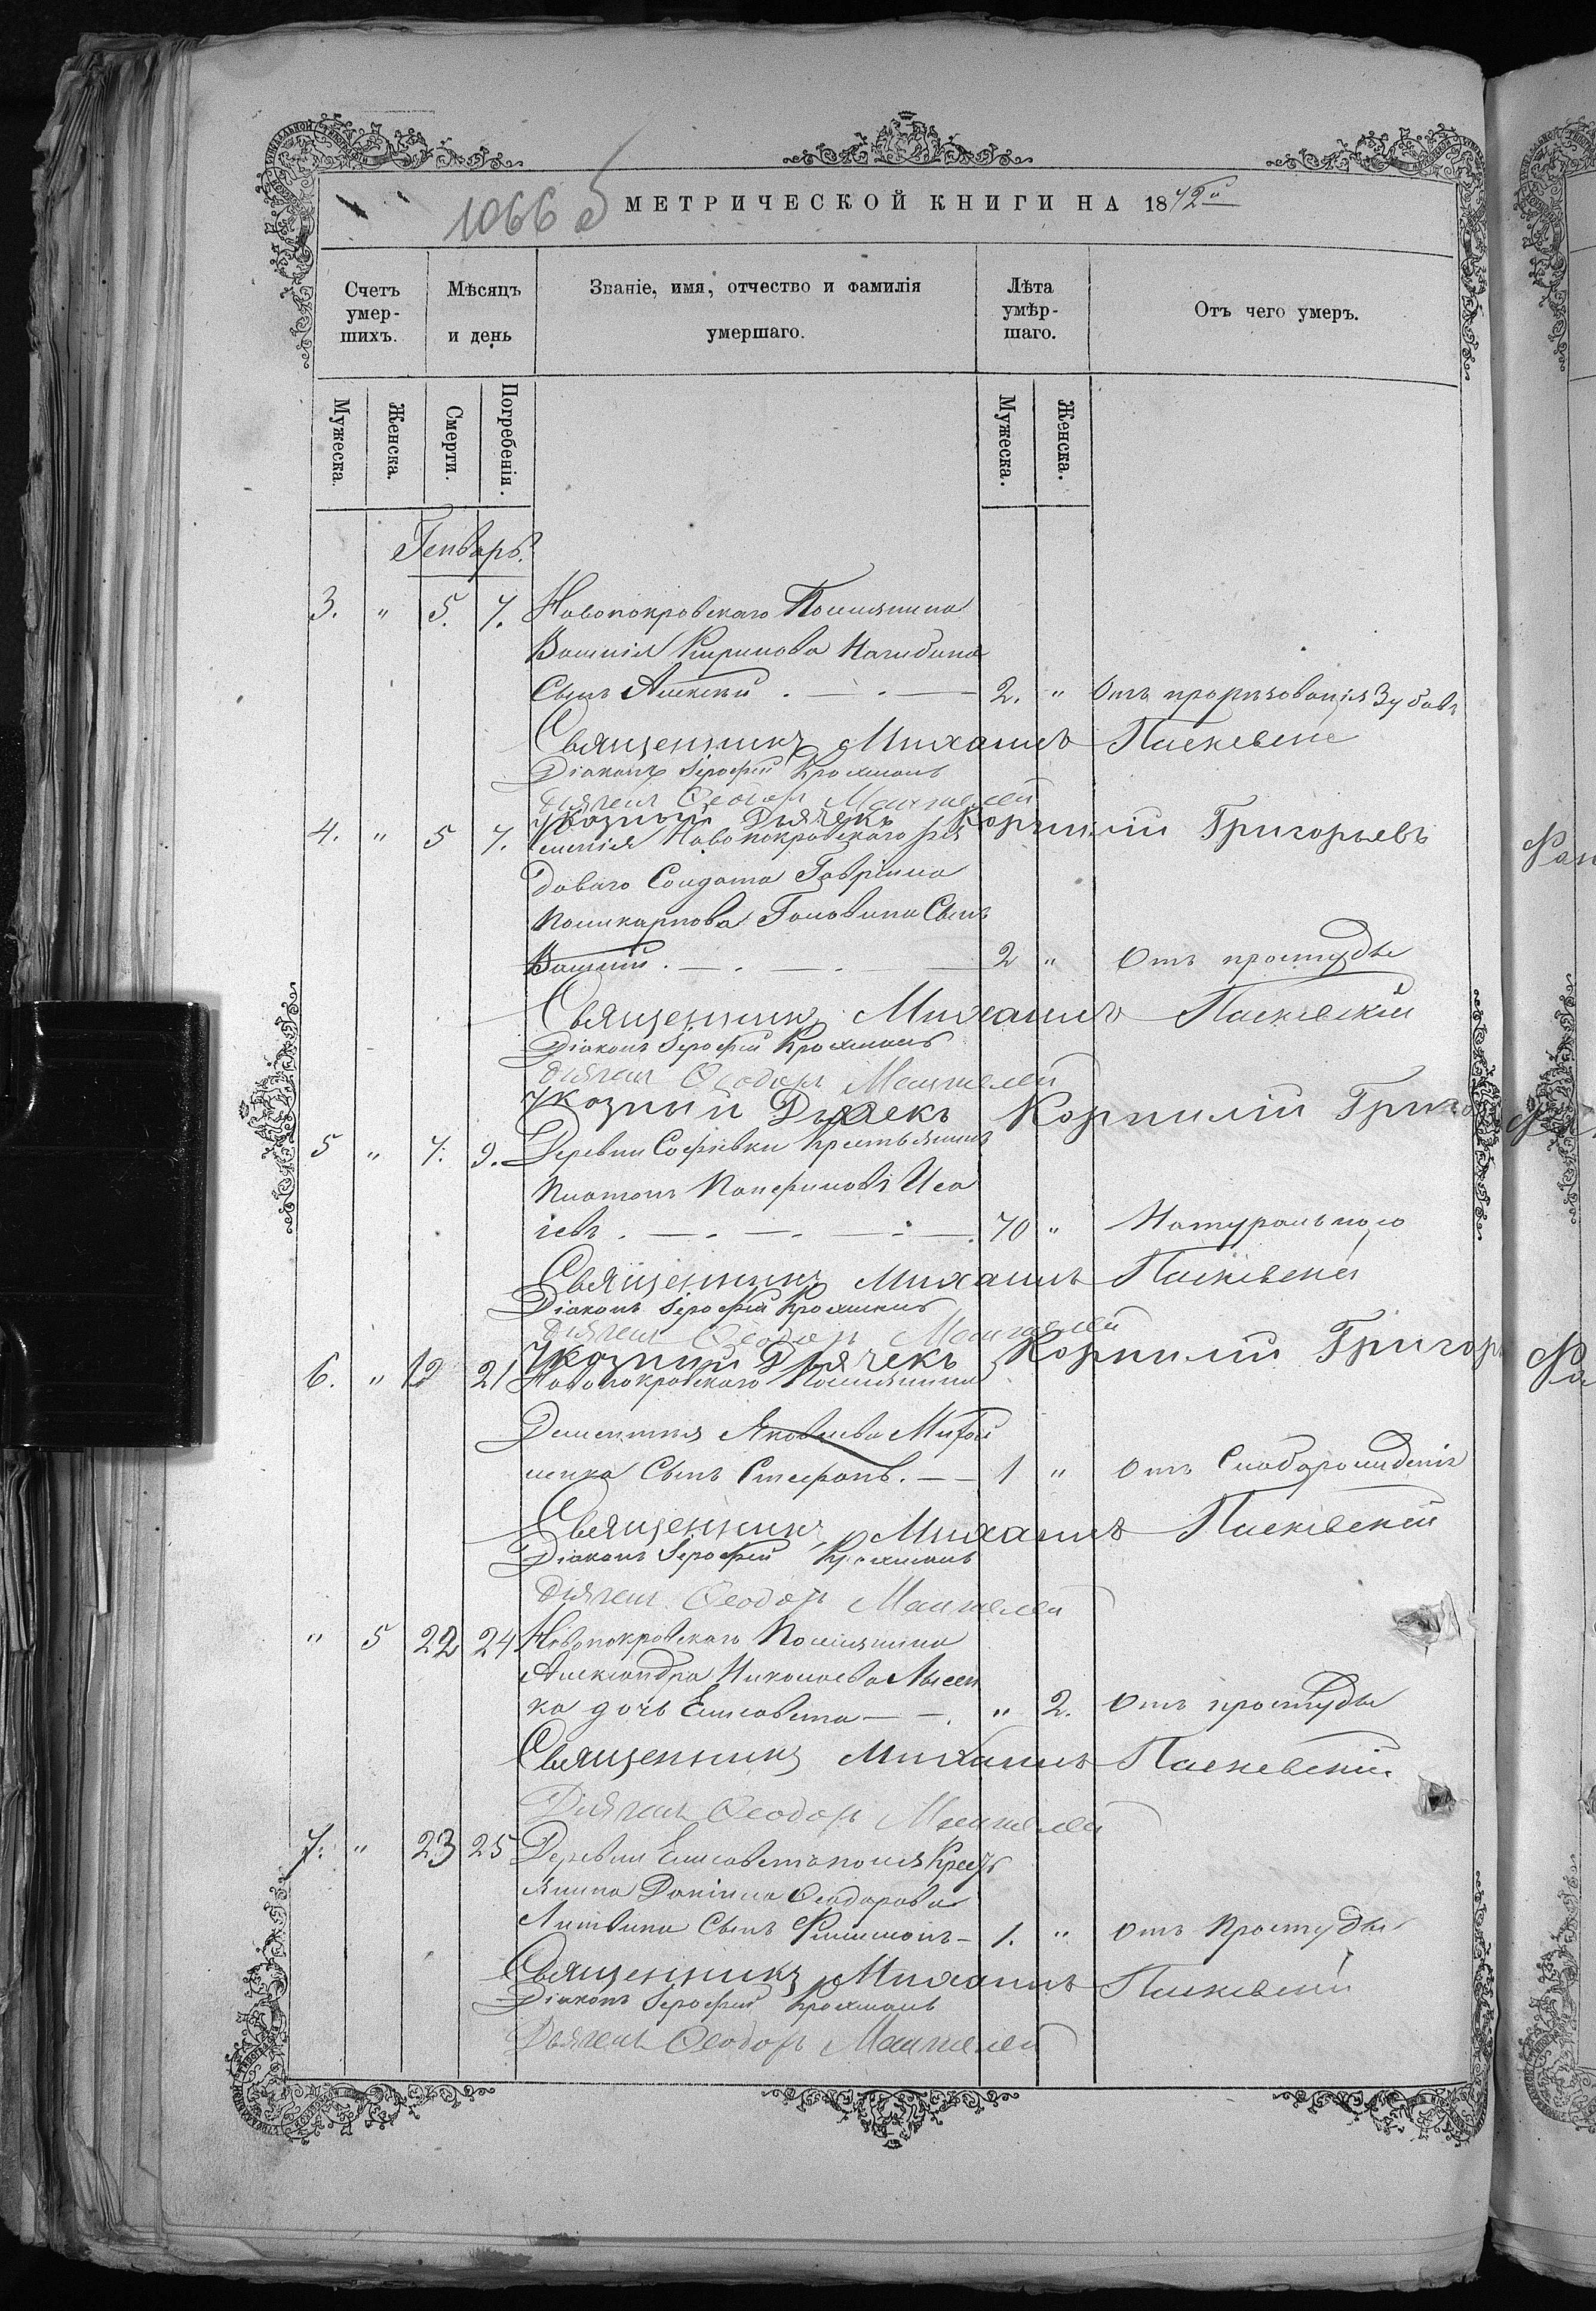 1066 б
МЕТРИЧЕСКОЙ КНИГИ НА 1872й
Счетъ умер-шихъ.
Мѣсяцъ и день
Званіе, имя, отчество и фамилія умершаго.
Лѣта умѣр-шаго.
Отъ чего умеръ.
Мужеска.
Женска.
Смерти.
Погребенія.
Мужеска.
Женска.
Генварь.
3. " 5. 7. Новопокровскаго Поселянина
Василія Нагибина
Сынъ Алексѣй . — . — 2. " Отъ прорѣзованія Зубовъ
Священникъ Михаилъ Паскевскій
Діаконъ Іерофей Крохмаль
Дьячекъ Ѳеодоръ
Указный Дьячекъ Корнилій Григорьевъ
4. " 5 7. Новопокровскаго
доваго Солдата Гавріила
Поликарпова Головина Сынъ
Василій . — . — . — 2 " Отъ простуды
Священникъ Михаилъ Паскевскій
Діаконъ Іерофей Крохмаль
Дьячекъ Ѳеодоръ
Указный Дьячекъ Корнилій Григо
5 " 7. 9. Деревни Софіевки Крестьянинъ
Платонъ Иса
іевъ . — . — . — . — 70 " Натурального
Священникъ Михаилъ Паскевскій
Діаконъ Іерофей Крохмаль
Дьячекъ Ѳеодоръ
Указный Дьячекъ Корнилій Григор
6. " 19 21 Новопокровскаго Поселянина
Дементія Яковлева
ленка Сынъ Стефанъ. — — 1 " Отъ Слаборожденія
Священникъ Михаилъ Паскевскій
Діаконъ Іерофей Крохмаль
Дьячекъ Ѳеодоръ
" 5 22 24 Новопокровскаго Поселянина
Александра Николаева Лысен
ка дочь Елисавета — — . " 2. Отъ простуды
Священникъ Михаилъ Паскевскій
Дьячекъ Ѳеодоръ
7. " 23 25 Деревни Елисаветополя Крестъ
янина Даніила Ѳеодорова
Литвина Сынъ Филимонъ — 1. " Отъ Простуды
Священникъ Михаилъ Паскевскій
Діаконъ Іерофей Крохмаль
Дьячекъ Ѳеодоръ